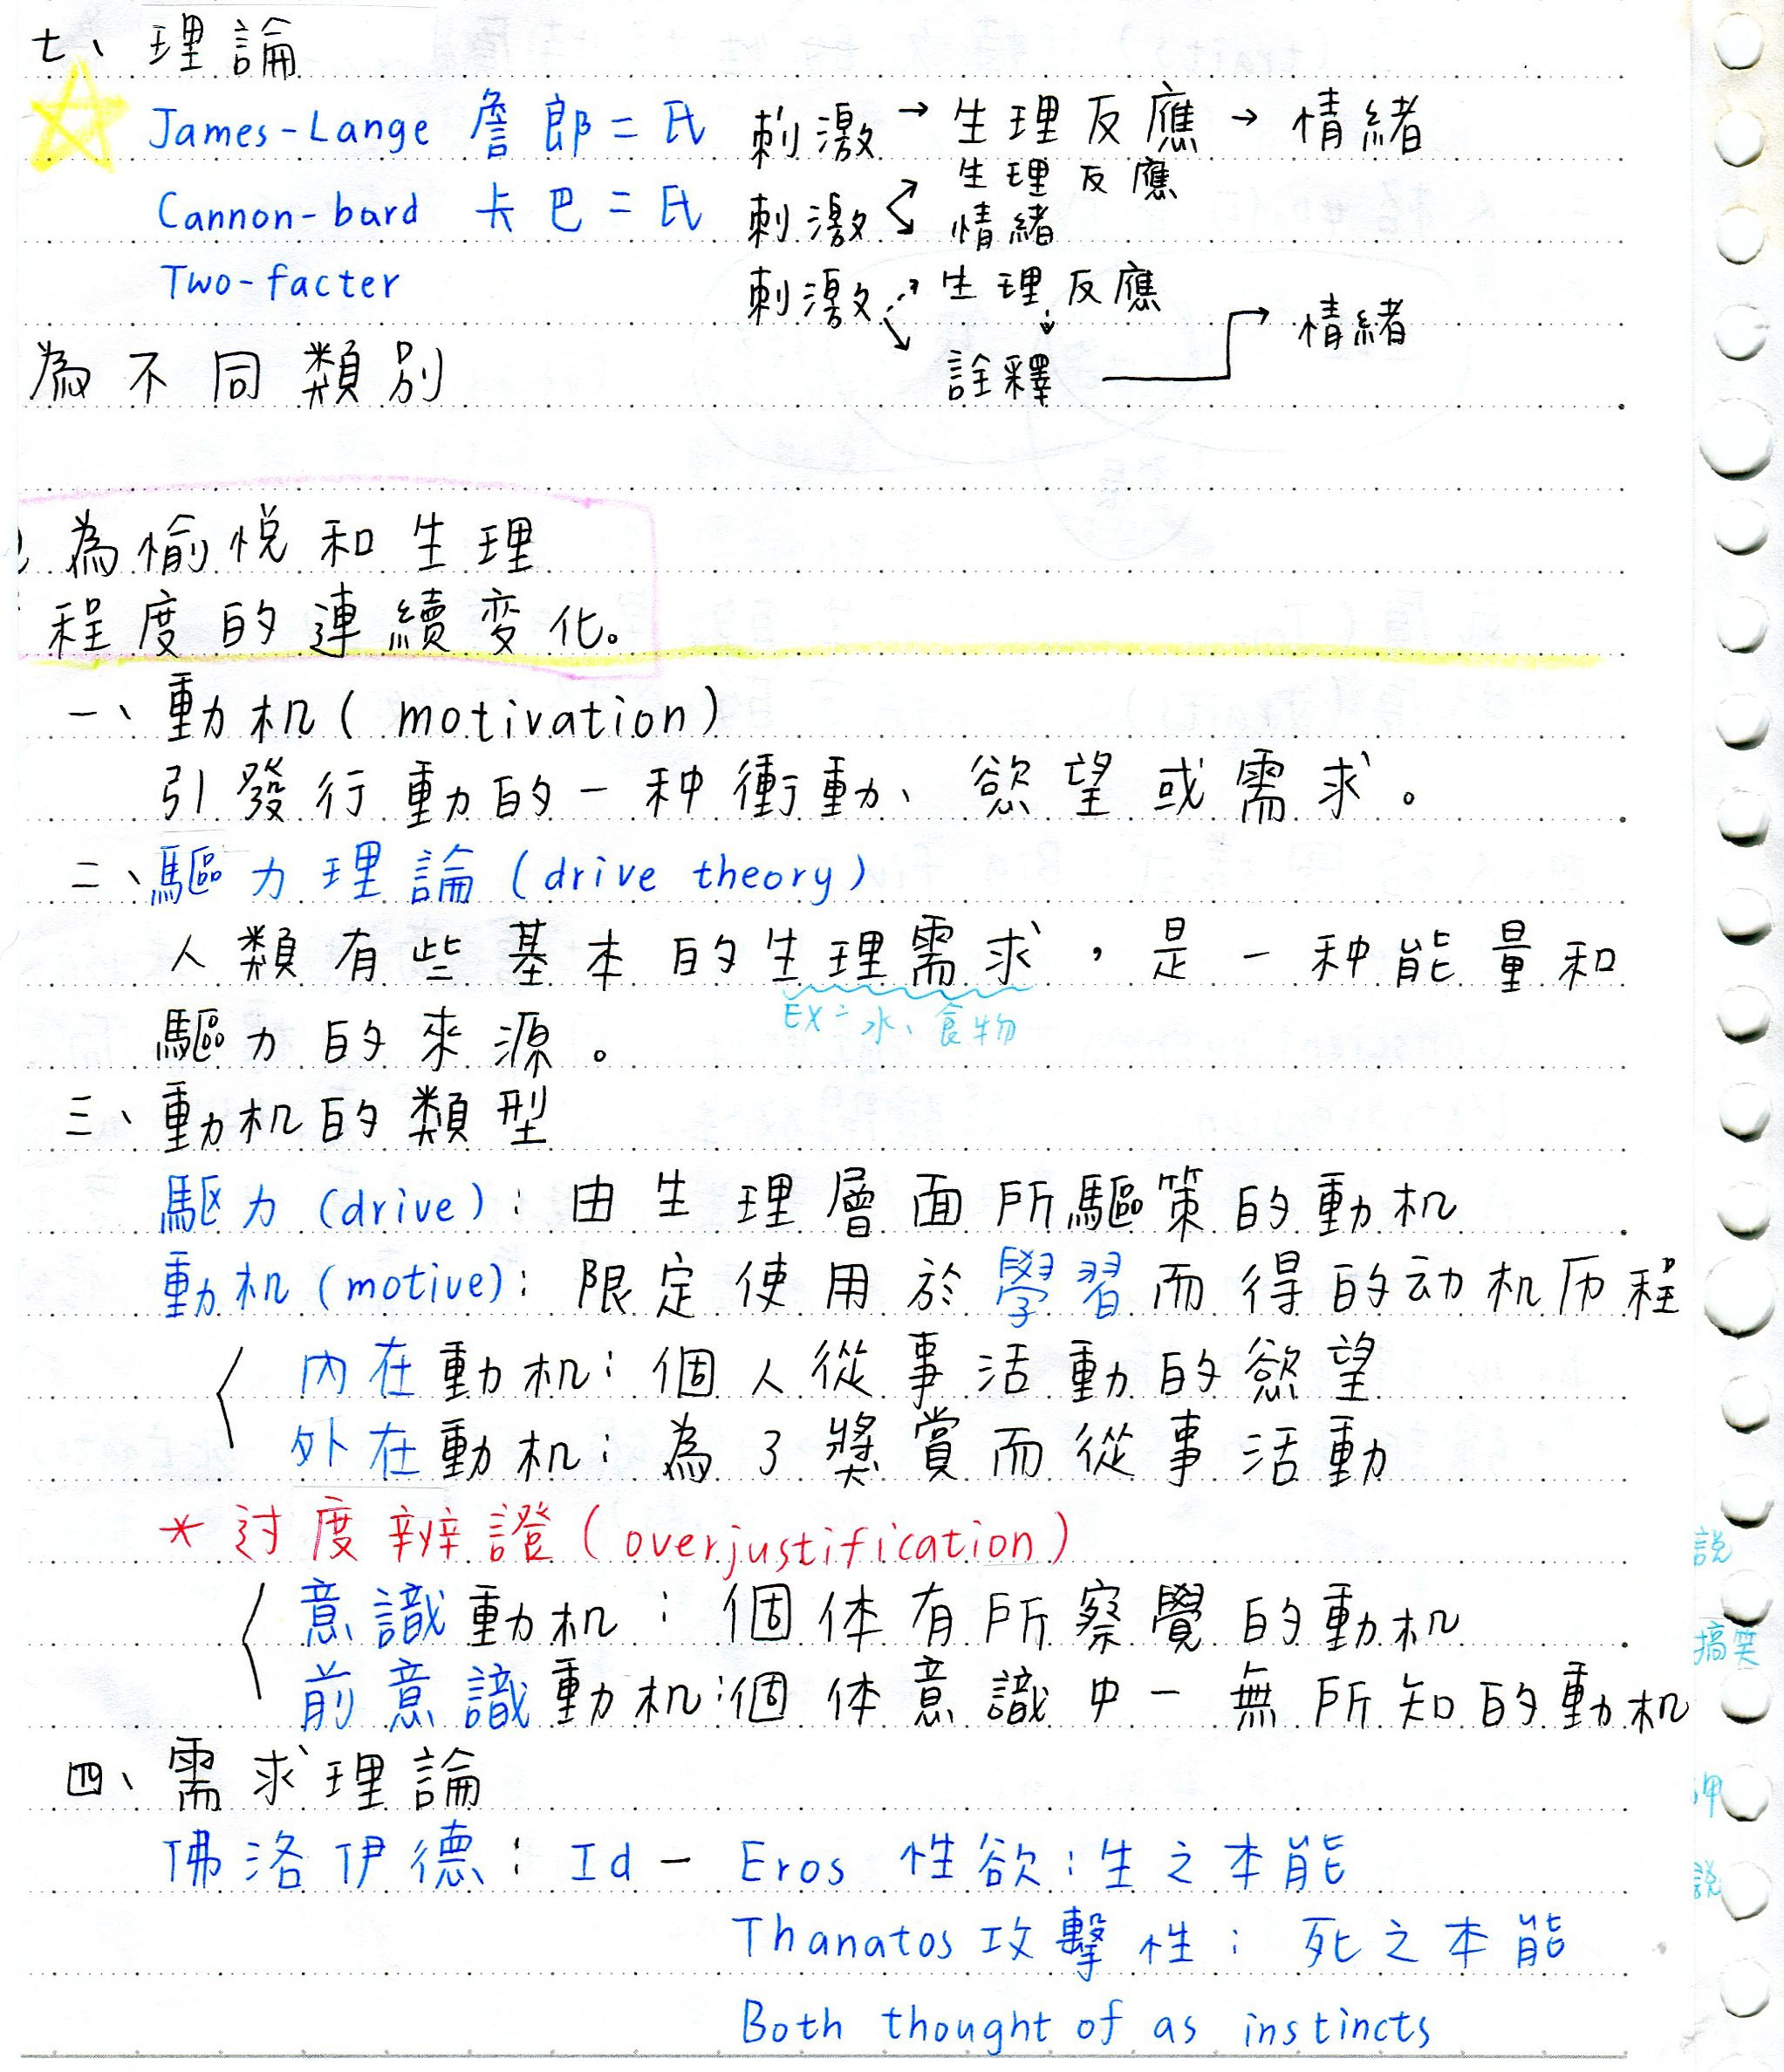 七、理論
James-Lange 詹郎二氏 刺激→生理反應→情緒
生理反應
Cannon-bard 卡巴二氏 刺激
情緒
Two-facter 刺激 生理反應
情緒
為不同類別 詮釋
為愉悅和生理
程度的連續变化。
一、動机(motivation)
引發行動的一种衝動、慾望或需求。
二、驅力理論(drive theory)
人類有些基本的生理需求，是一种能量和
EX=水、食物
驅力的來源。
三、動机的類型
駆力(drive):由生理層面所驅策的動机
動机(motive):限定使用於學習而得的动机历程
內在動机:個人從事活動的慾望
外在動机:為了獎賞而從事活動
*过度辨證(overjustification)
意識動机:個体有所察覺的動机
前意識動机:個体意識中一無所知的動机
四、需求理論
佛洛伊德:Id－Eros 性欲:生之本能
Thanatos 攻擊性:死之本能
Both thought of as instincts
説
搞笑
説